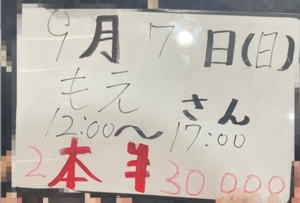 9月7日(日)
もえ さん
12:00〜17:00
2本半 30000